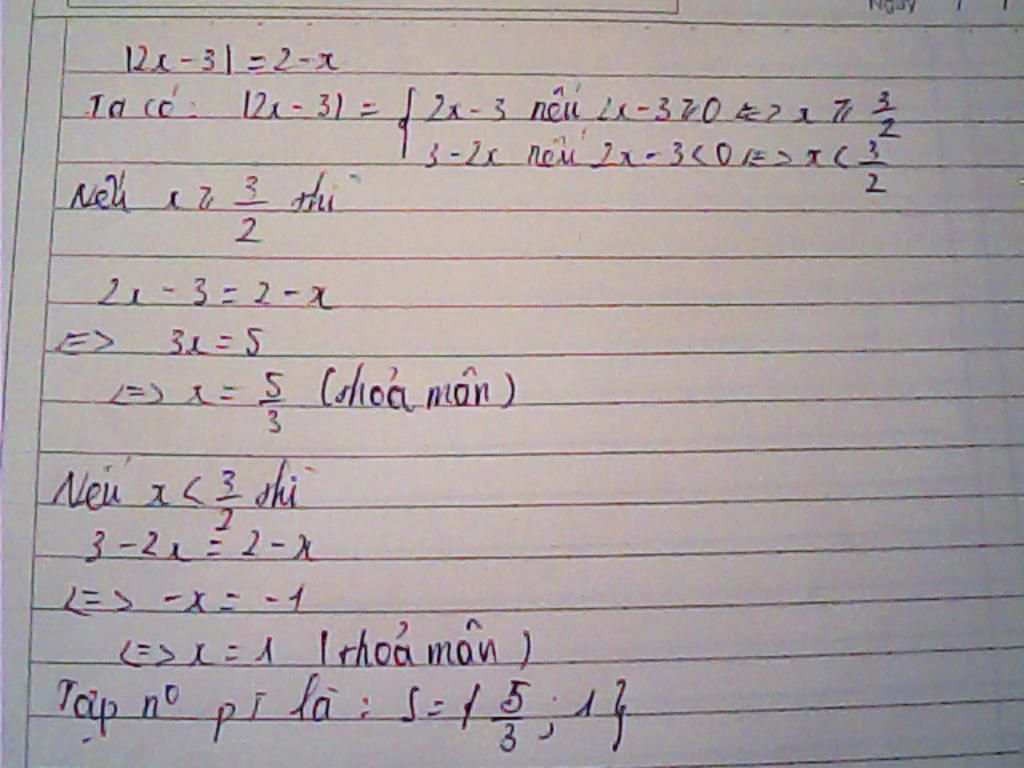 Ngày / /
|2x - 3| = 2 - x
Ta có: |2x - 3| = { 2x - 3 nếu 2x - 3 ≥ 0 <=> x ≥ 3/2
3 - 2x nếu 2x - 3 < 0 <=> x < 3/2
Nếu x ≥ 3/2 thì
2x - 3 = 2 - x
<=> 3x = 5
<=> x = 5/3 (thoả mãn)
Nếu x < 3/2 thì
3 - 2x = 2 - x
<=> -x = -1
<=> x = 1 (thoả mãn)
Tập nº pT là : S = { 5/3 ; 1 }